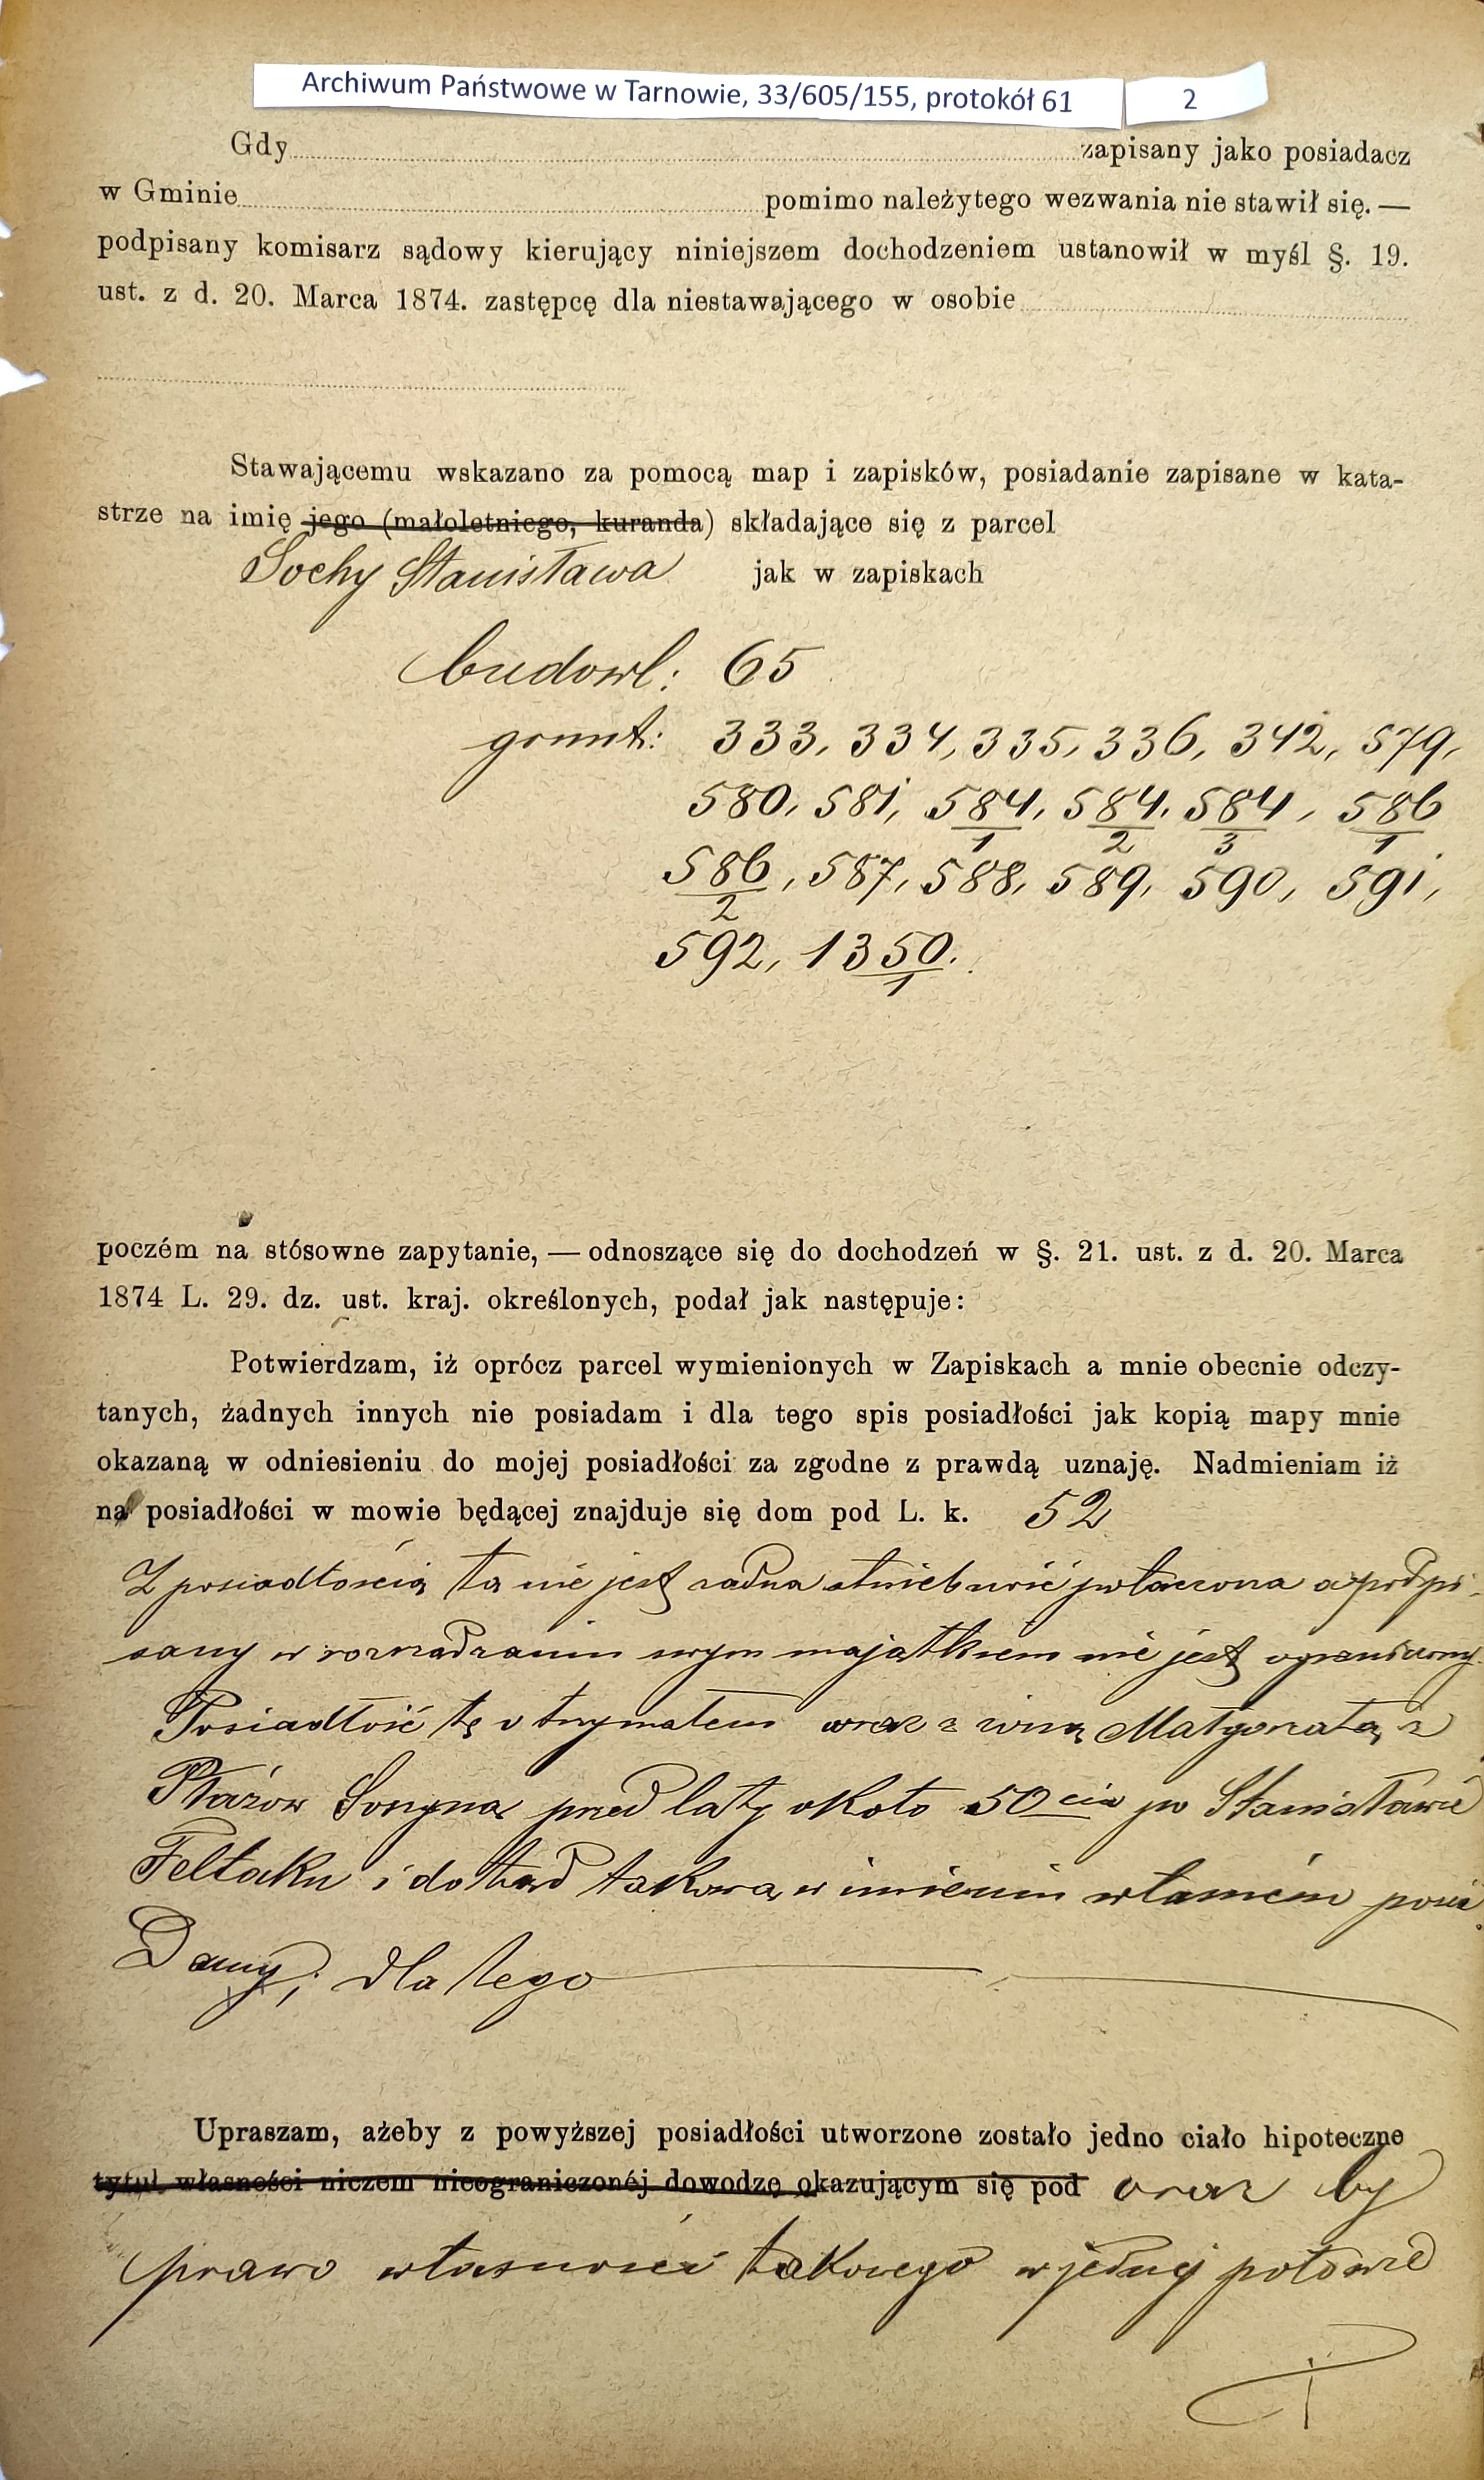 Archiwum Państwowe w Tarnowie, 33/605/155, protokół 61 2
Gdy zapisany jako posiadacz
w Gminie pomimo należytego wezwania nie stawił się. —
podpisany komisarz sądowy kierujący niniejszem dochodzeniem ustanowił w myśl §. 19.
ust. z d. 20. Marca 1874. zastępcę dla niestawającego w osobie
Stawającemu wskazano za pomocą map i zapisków, posiadanie zapisane w kata-
strze na imię jego (małoletniego, kuranda) składające się z parcel
Sochy Stanisława jak w zapiskach
budowl: 65
grunt: 333, 334, 335, 336, 342, 579,
580, 581, 584/1, 584/2, 584/3, 586/1
586/2, 587, 588, 589, 590, 591,
592, 1350/1.
poczém na stósowne zapytanie, — odnoszące się do dochodzeń w §. 21. ust. z d. 20. Marca
1874 L. 29. dz. ust. kraj. określonych, podał jak następuje:
Potwierdzam, iż oprócz parcel wymienionych w Zapiskach a mnie obecnie odczy-
tanych, żadnych innych nie posiadam i dla tego spis posiadłości jak kopią mapy mnie
okazaną w odniesieniu do mojej posiadłości za zgodne z prawdą uznaję. Nadmieniam iż
na posiadłości w mowie będącej znajduje się dom pod L. k. 52
Z posiadłością tą nie jest żadna służebność połączona a podpi-
sany w rozrządzaniu swym majątkiem nie jest ograniczony.
Posiadłość tę otrzymałem wraz z żoną Małgorzatą z
Ptazów przed laty około 50cia po Stanisławie
Feltaku i dotąd takową w imieniu własném posia
damy; dla tego
Upraszam, ażeby z powyższej posiadłości utworzone zostało jedno ciało hipoteczne
tytuł własności niczem nieograniczonéj dowodzę okazującym się pod oraz by
prawo własności takowego w jednej połowie